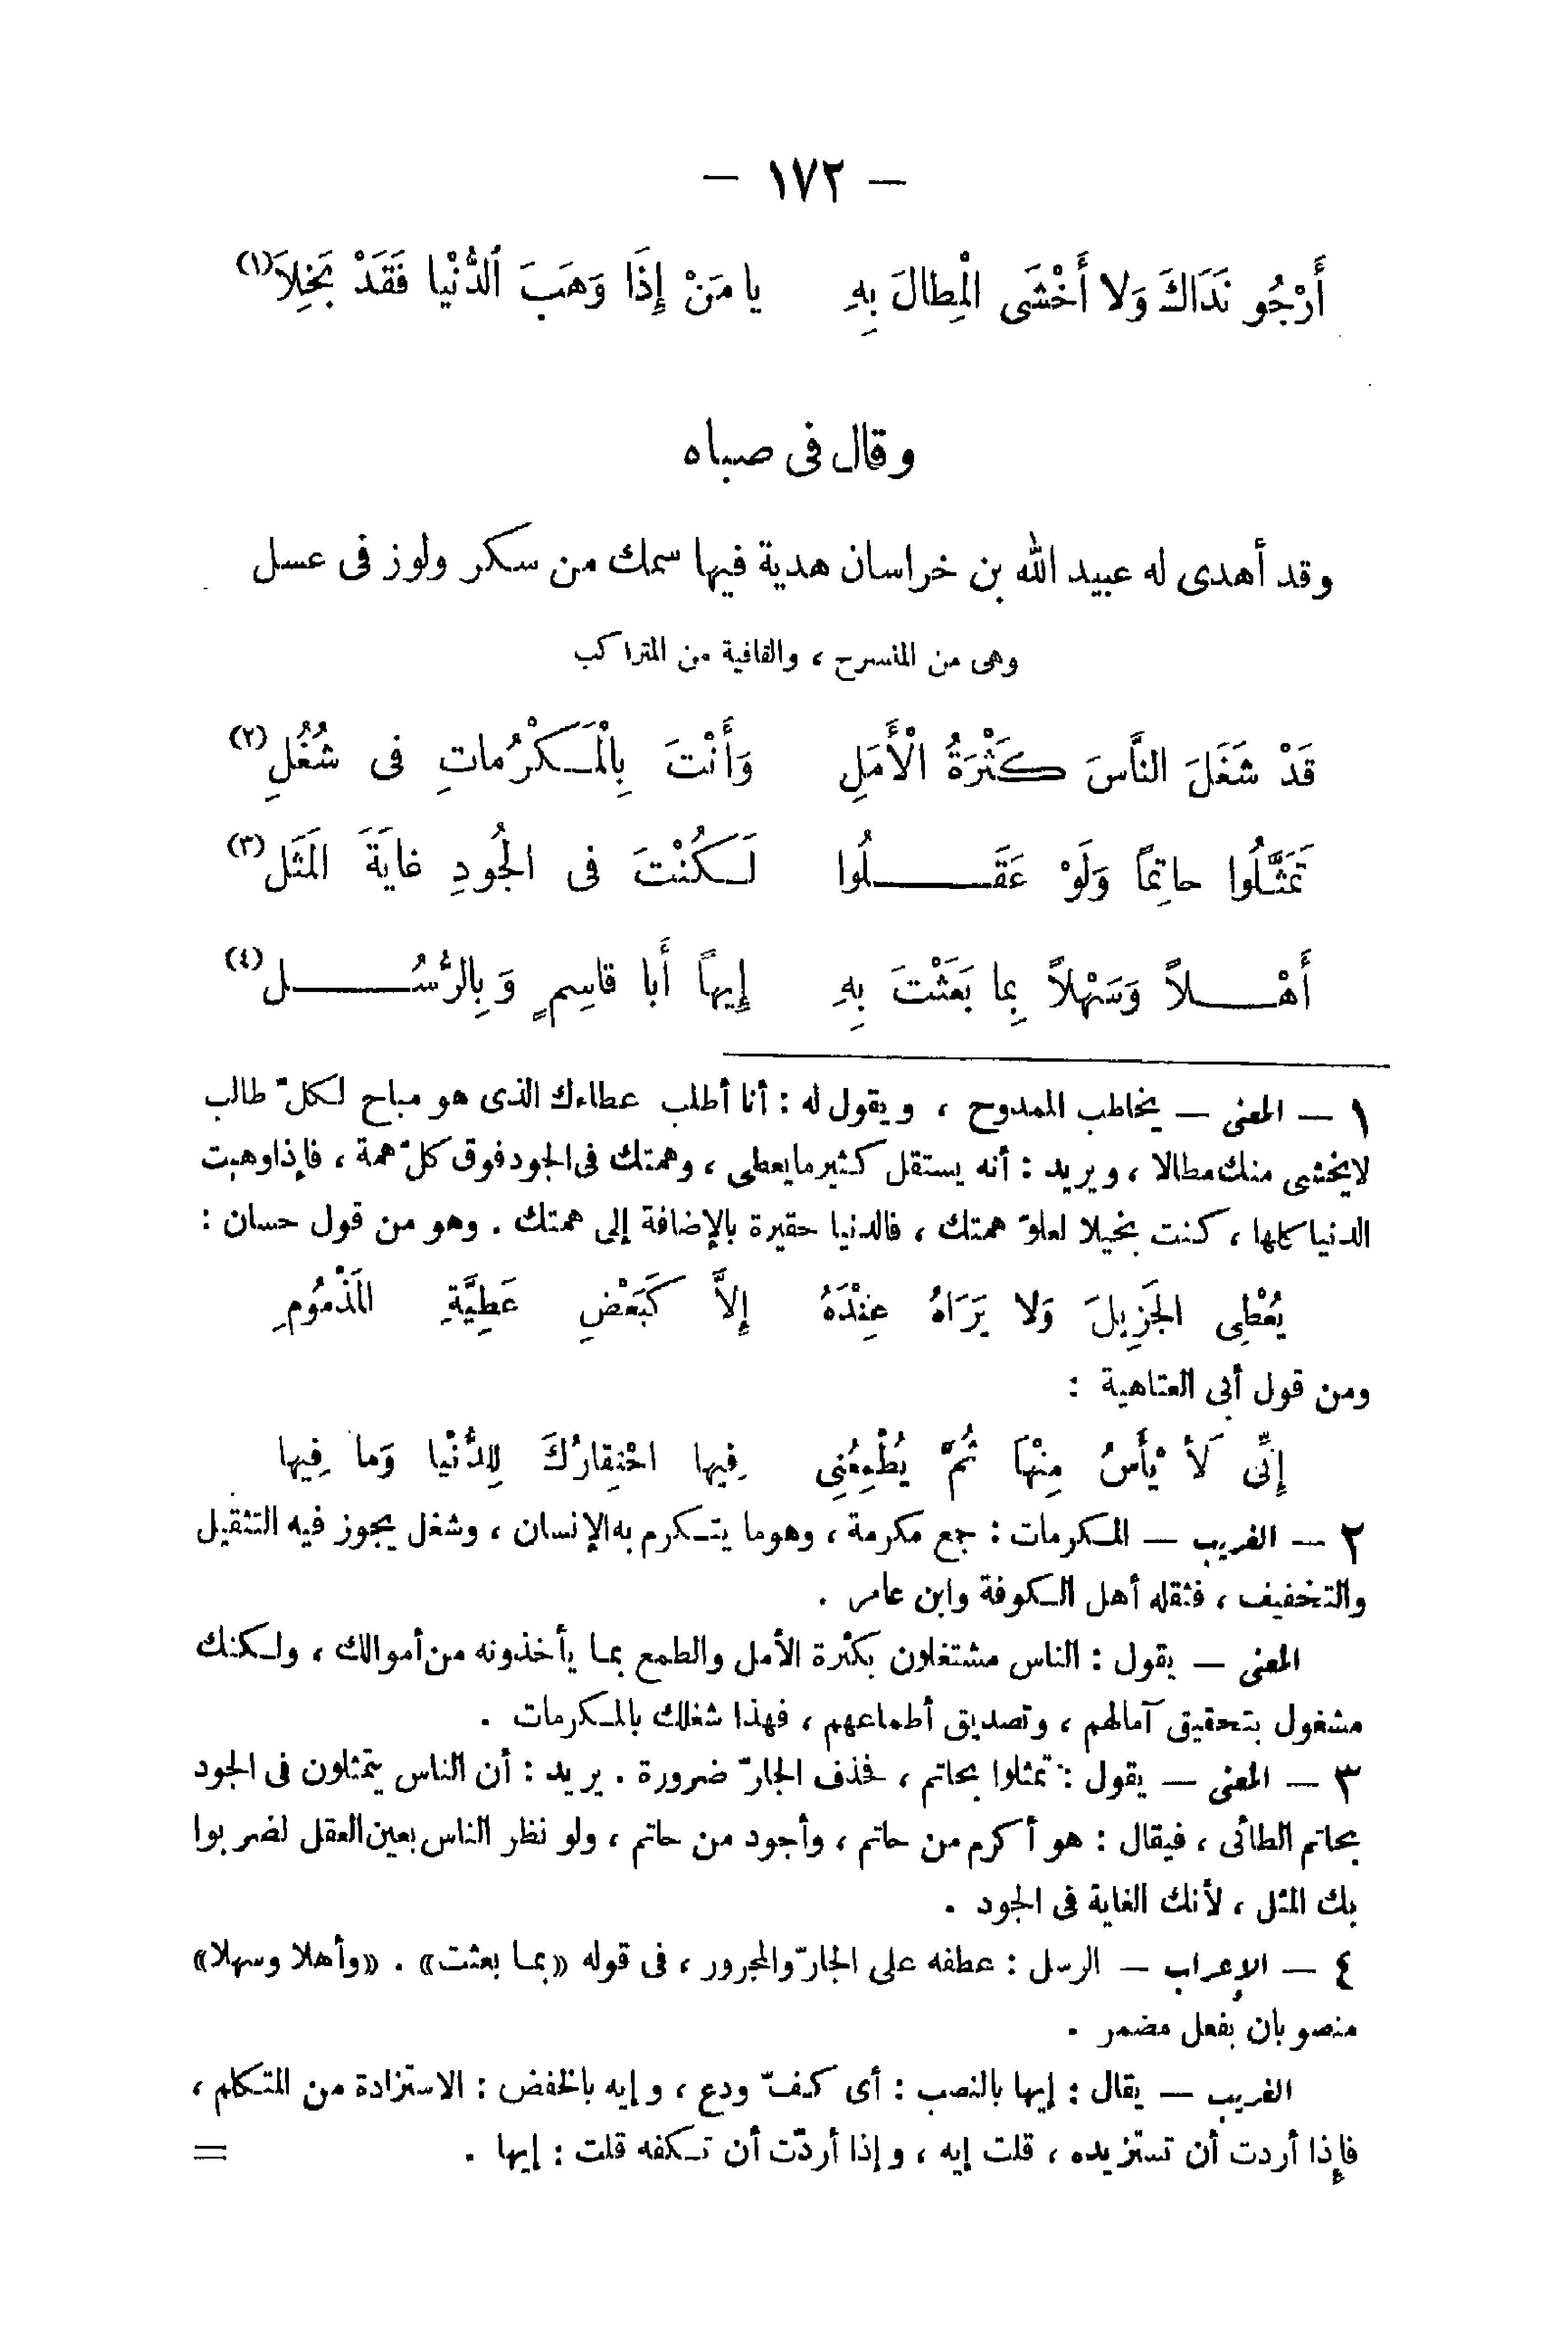 — ١٧٢ —
أَرْجُو نَدَاكَ وَلا أَخْشَى الْمِطالَ بِهِ يا مَنْ إِذَا وَهَبَ الدُّنْيا فَقَدْ بَخِلاَ(١)
وقال فى صباه
وقد أهدى له عبيد الله بن خراسان هدية فيها سمك من سكر ولوز فى عسل
وهى من المنسرح ، والقافية من المتراكب
قَدْ شَغَلَ النَّاسَ كَثْرَةُ الْأَمَلِ وَأَنْتَ بِالْمَكْرُماتِ فى شُغُلِ(٢)
تَمَثَّلُوا حاتِمًا وَلَوْ عَقَلُوا لَكُنْتَ فى الجُودِ غايَةَ المَثَلِ(٣)
أَهْلاً وَسَهْلاً بِما بَعَثْتَ بِهِ إِيهاً أَبا قاسِمٍ وَبِالرُّسُلِ(٤)
١ — المعنى — يخاطب الممدوح ، ويقول له : أنا أطلب عطاءك الذى هو مباح لكلّ طالب
لايخشى منك مطالا ، ويريد : أنه يستقل كثير مايعطى ، وهمتك فى الجود فوق كلّ همة ، فإذا وهبت
الدنيا كلها ، كنت بخيلا لعلوّ همتك ، فالدنيا حقيرة بالإضافة إلى همتك . وهو من قول حسان :
يُعْطِى الجَزِيلَ وَلا يَرَاهُ عِنْدَهُ إِلاَّ كَبَعْضِ عَطِيَّةِ المَذْمُومِ
ومن قول أبى العتاهية :
إِنِّى لَأَيْأَسُ مِنْهَا ثُمَّ يُطْمِعُنِى فِيها احْتِقارُكَ لِلدُّنْيا وَما فِيها
٢ — الغريب — المكرمات : جمع مكرمة ، وهوما يتكرم به الإنسان ، وشغل يجوز فيه التثقيل
والتخفيف ، فثقله أهل الكوفة وابن عامر .
المعنى — يقول : الناس مشتغلون بكثرة الأمل والطمع بما يأخذونه من أموالك ، ولكنك
مشغول بتحقيق آمالهم ، وتصديق أطماعهم ، فهذا شغلك بالمكرمات .
٣ — المعنى — يقول : تمثلوا بحاتم ، فحذف الجارّ ضرورة . يريد : أن الناس يتمثلون فى الجود
بحاتم الطائى ، فيقال : هو أكرم من حاتم ، وأجود من حاتم ، ولو نظر الناس بعين العقل لضربوا
بك المثل ، لأنك الغاية فى الجود .
٤ — الإعراب — الرسل : عطفه على الجارّ والمجرور ، فى قوله «بما بعثت» . «وأهلا وسهلا»
منصوبان بفعل مضمر .
الغريب — يقال : إيها بالنصب : أى كفّ ودع ، وإيه بالخفض : الاستزادة من المتكلم ،
فإذا أردت أن تستزيده ، قلت إيه ، وإذا أردّت أن تكفه قلت : إيها . =